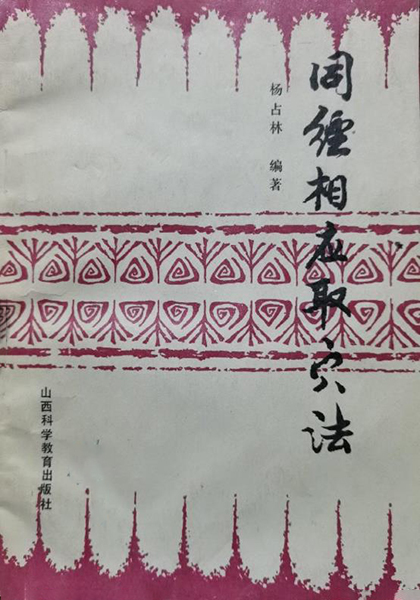 同经相应取穴法
杨占林 编著
山西科学教育出版社